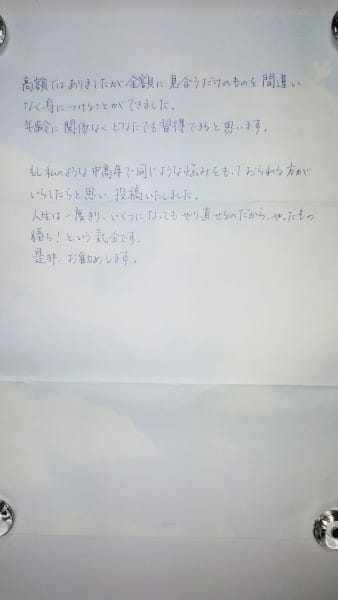 高額ではありましたが金額に見合うだけのものを間違い
なく身につけることができました。
年齢に関係なくどなたでも習得できると思います。
もし私のような中高年で同じような悩みをもっておられる方が
いらしたらと思い、投稿いたしました。
人生は一度きり、いくつになってもやり直せるのだから、やったもの
勝ち!という気分です。
是非、お勧めします。